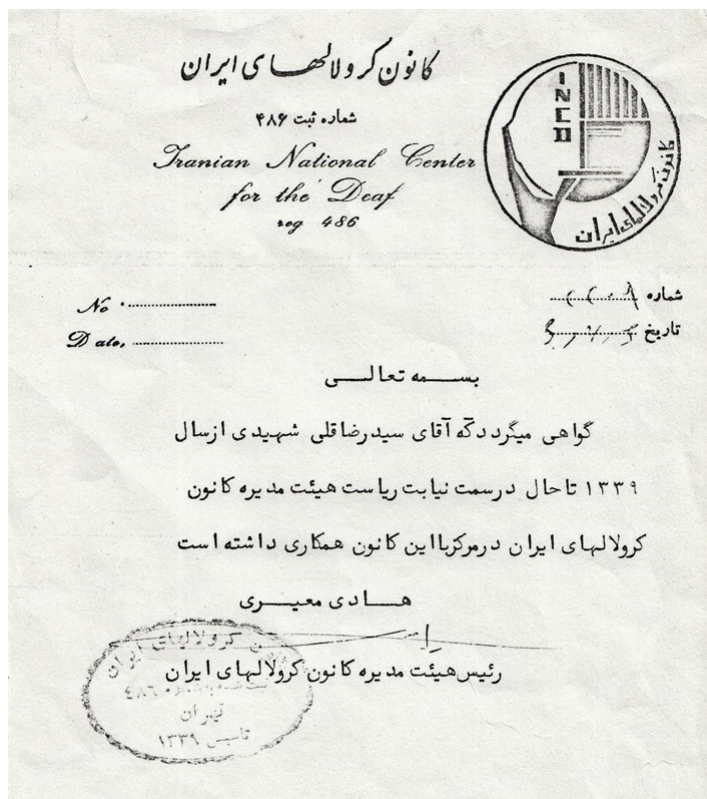 کانون کرولالهای ایران
شماره ثبت ۴۸۶
Iranian National Center
for the Deaf
reg 486
INCD
کانون کرولالهای ایران
No.
Date.
شماره
تاریخ
بسمه تعالی
گواهی میگردد که آقای سید رضاقلی شهیدی از سال
۱۳۳۹ تا حال در سمت نیابت ریاست هیئت مدیره کانون
کرولالهای ایران در مرکز با این کانون همکاری داشته است
هادی معیری
رئیس هیئت مدیره کانون کرولالهای ایران
کرولالهای ایران
۴۸۶
تهران
تاسیس ۱۳۳۹